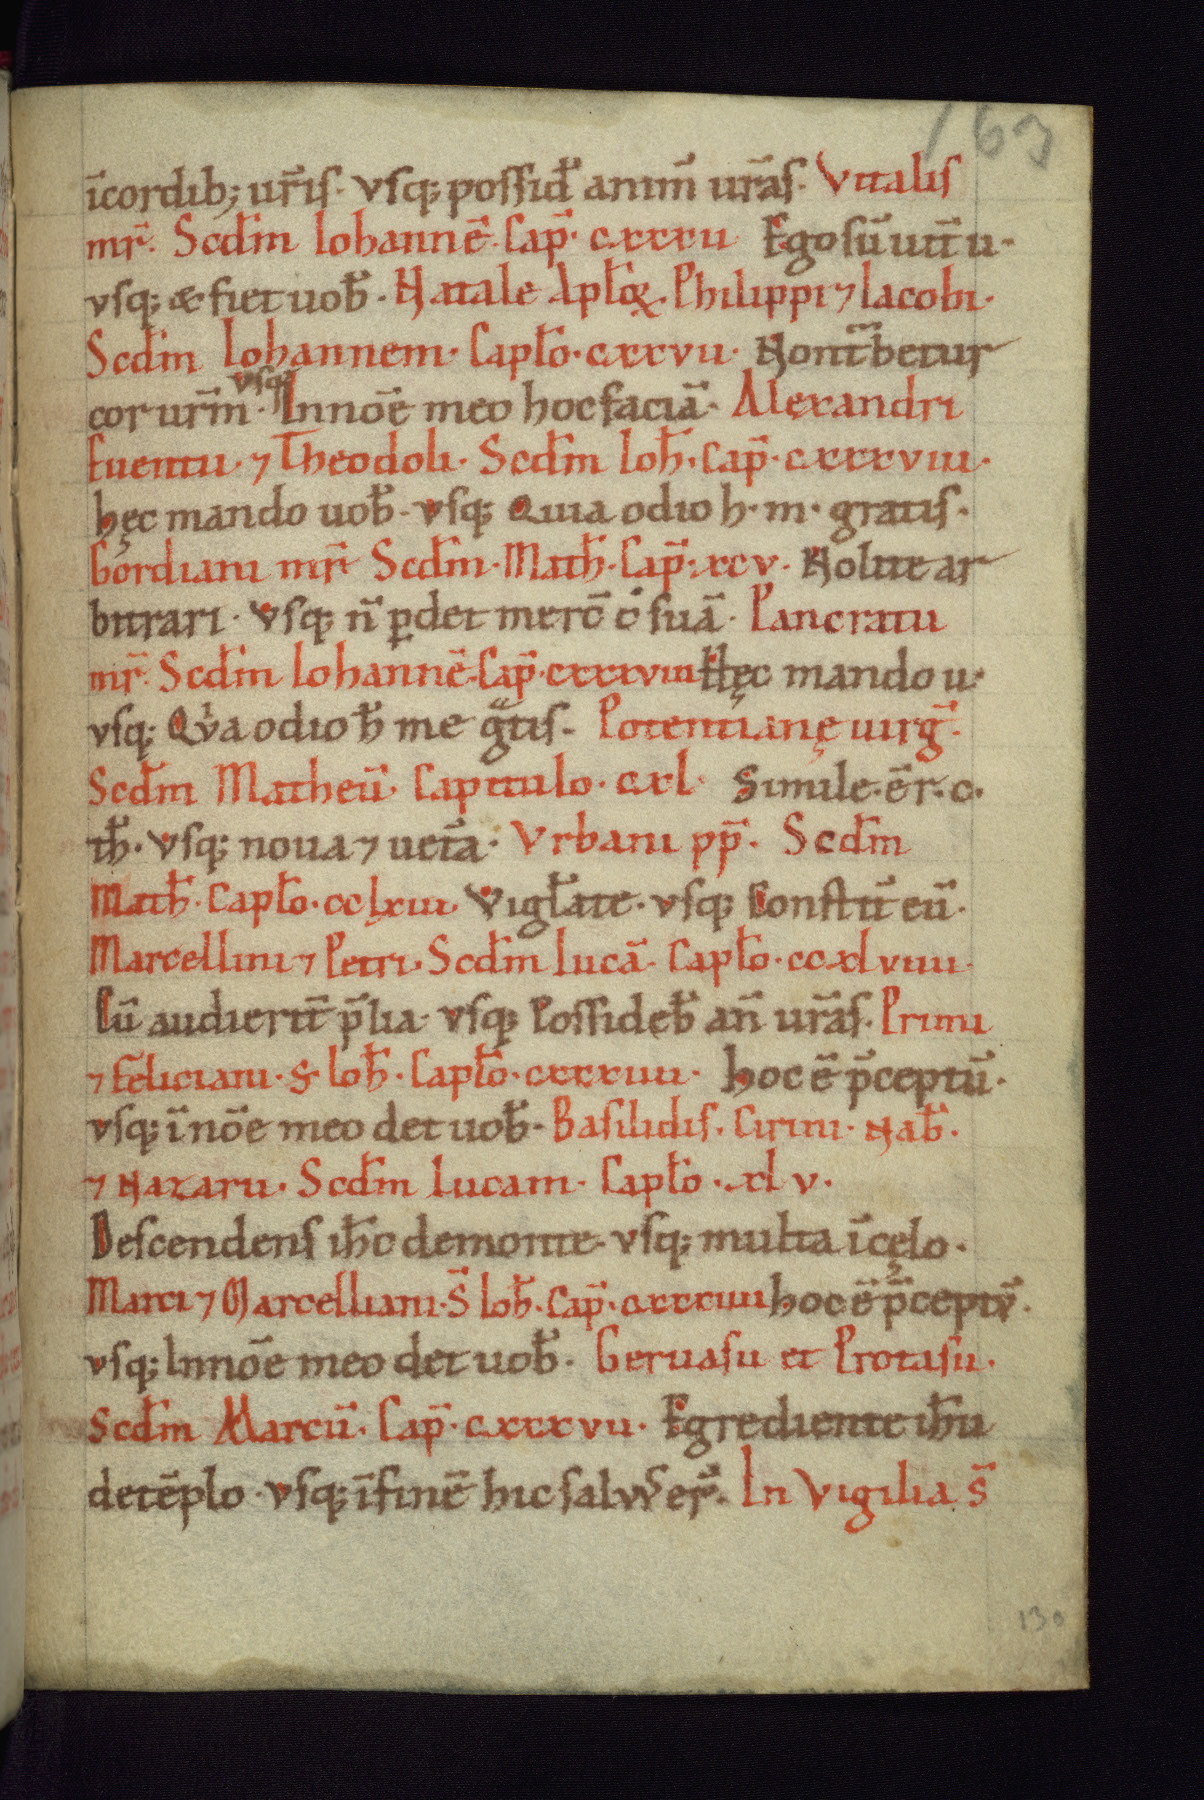 163
īcordib; ur̄is. vsq; possid̄ anim̄ ur̄as. Vitalis
mr̄. Scd̄m Iohannē. Cap̄. cxxxv Ego sū uit̄ u.
vsq; & fiet uob̄. Natale Apl̄oꝝ. Philippi ⁊ Iacobi.
Scd̄m Iohannem. Capl̄o. cxxvii. Non t̄betur
cor ur̄m. vsq; In nōe meo hoc faciā. Alexandri
Euentii. ⁊ Theodoli. Scd̄m Ioh̄. Cap̄. cxxxviii.
hęc mando uob̄. vsq; Quia odio h. m. gratis.
Gordiani mr̄i Scd̄m. Math̄. Cap̄. xcv. Nolite ar
bitrari. vsq; n̄ ꝑdet mercē suā. Pancratii
mr̄. Scd̄m Iohannē. Cap̄. cxxxviii Hęc mando u.
vsq; Qvia odio h̄ me gᵃtis. Potentianę uirḡ.
Scd̄m Matheū. Capitulo. cxl. Simile. ēr. c.
th̄. vsq; noua ⁊ uet̄a. Vrbani pp̄. Scd̄m
Math̄. Capl̄o. cclxiii. Vigl̄ate. vsq; Constit̄ eū.
Marcellini ⁊ Petri. Scd̄m lucā. Capl̄o. ccxlviiii.
Cū audierit̄ p̄lia. vsq; Possideb̄ an̄ ur̄as. Primi
⁊ Feliciani. S̄ Ioh̄. Capl̄o. cxxxviiii. hoc ē p̄ceptū.
vsq; ī nōe meo det uob̄. Basilidis. Cirini. Nab̄.
⁊ Nazarii. Scd̄m lucam. Capl̄o. xlv.
Descendens ih̄c de monte. vsq; multa ī cęlo.
Marci ⁊ Marcelliani. S̄ Ioh̄. Cap̄. cxxxviiii hoc ē p̄ceptv̄.
vsq; In nōe meo det uob̄. Geruasii et Protasii.
Scd̄m Marcū. Cap̄. cxxxvii. Egrediente ih̄u
de tēplo. vsq; ī finē hic salvvs er̄. In Vigilia s̄
130